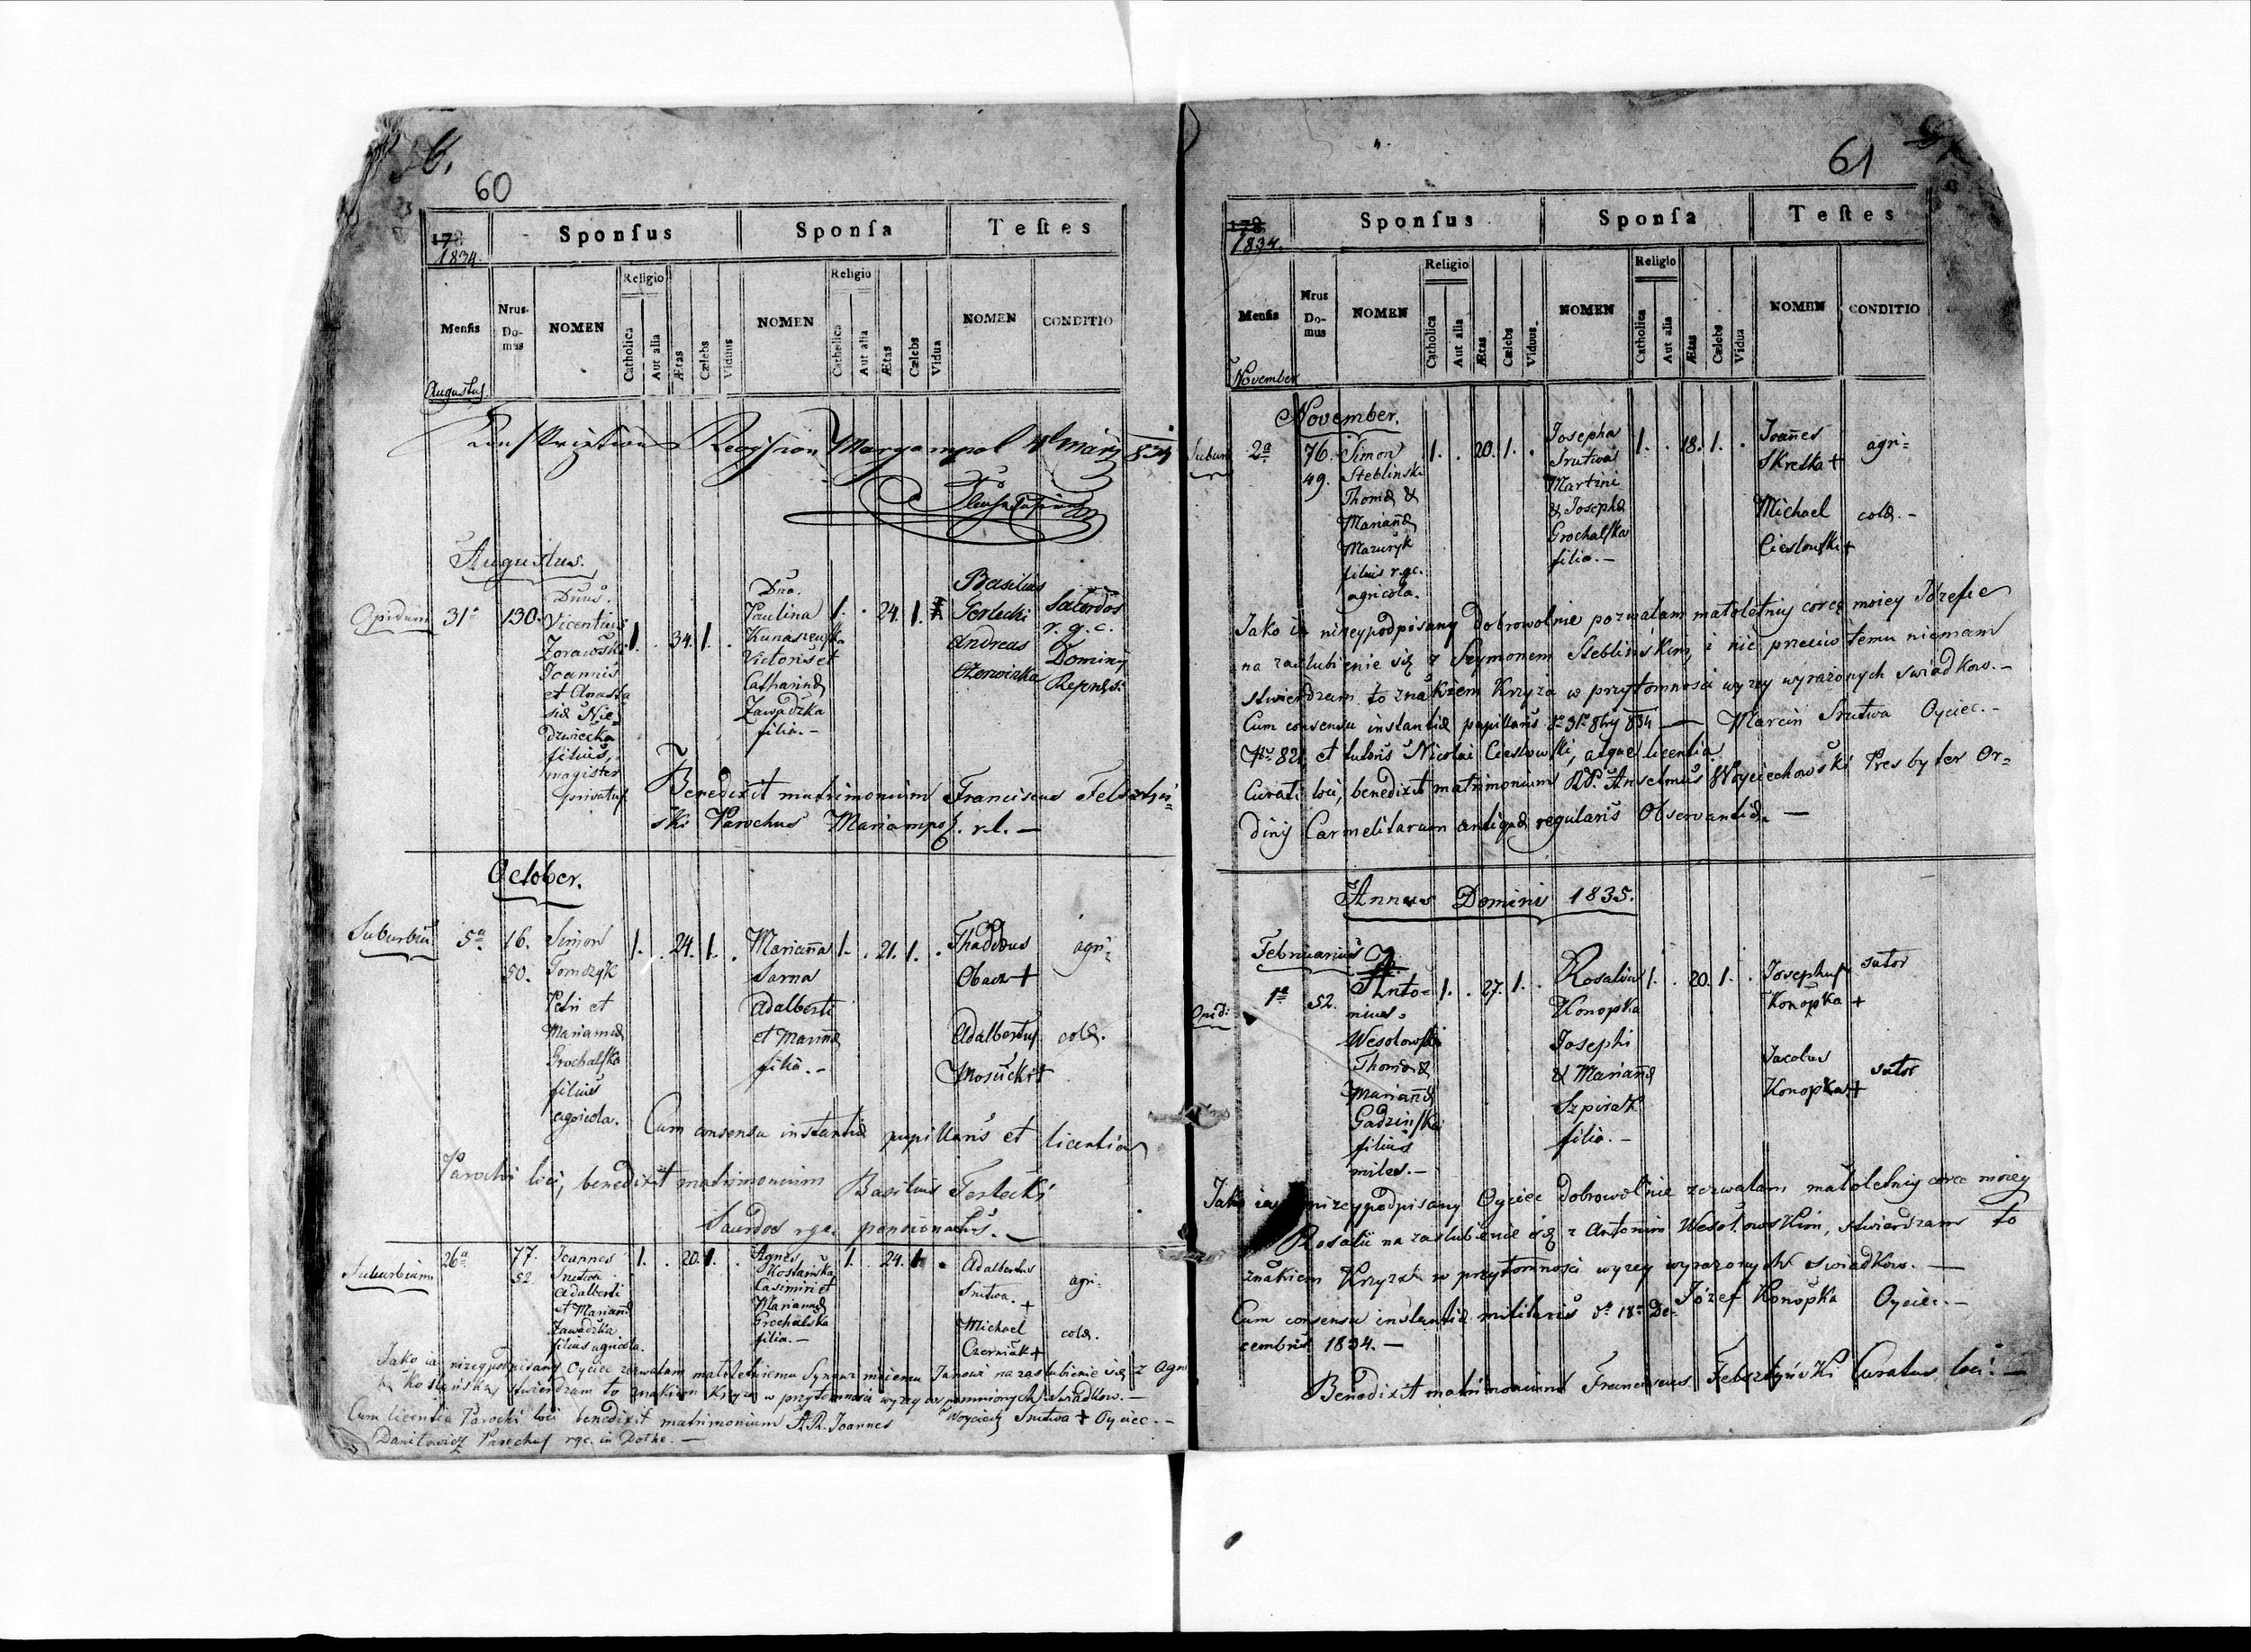 60
1834.
Sponſus Sponſa Teſtes
Menſis Nrus Do-mus NOMEN Religio Catholica Aut alia Ætas Cælebs Viduus NOMEN Religio Catholica Aut alia Ætas Cælebs Vidua NOMEN CONDITIO
Augustus.
Augustus.
Opidum 31ª 130.
Dnus.
Vicentius
Zorawski
Joannis
et Anasta
siæ Nie=
dzwiecka
filius,
magister
privatus
1. . 34. 1. .
Dna.
Paulina
Kunaszewska
Victoris et
Catharinæ
Zawadzka
filia.-
1. . 24. 1.
Basilius
Terlecki
Andreas
Czerwinka
Sacerdos
r. g. c.
Dominij
Benedixit matrimonium Franciscus Felsztyń=
ski Parochus Mariampol. r.l. —
October.
Suburbium 5ª 16.
50.
Simon
Tomczyk
Petri et
Mariannæ
Grochalska
filius
agricola.
1. . 24. 1. .
Marianna
Sarna
Adalberti
et Mariñæ
filia.-
1. . 21. 1. .
Thaddæus
Obacz +
Adalbertus
Mosucki +
agri=
colæ.
Cum consensu instantiæ pupillaris et licentia
Parochi loci, benedixit matrimonium Basilius Terlecki
Sacerdos rgc. pensionatus. —
Suburbium 26ª 77.
52.
Joannes
Srutwa
Adalberti
et Mariannæ
Zawadzka
filius agricola.
1. . 20. 1. .
Agnes
Koslańska
Casimiri et
Mariannæ
Grochalska
filia.-
1. . 24. 1. .
Adalbertus
Srutwa. +
Michael
Czerniak +
agri=
colæ.
Jako ia niżeypodpisany Oyciec zezwalam małoletniemu Synowi moiemu Janowi na zaslubienie się z Agni
Koslańską, stwierdzam to znakiem Krzyża w przytomności wyzey wspomnionych swiadkow.—
Cum licentia Parochi loci benedixit matrimonium A.R. Joannes Woyciech Srutwa + Oyciec.—
Danilowicz Parochus rgc. in Dołhe.—
61
1834.
Sponſus Sponſa Teſtes
Menſis Nrus Do-mus NOMEN Religio Catholica Aut alia Ætas Cælebs Viduus NOMEN Religio Catholica Aut alia Ætas Cælebs Vidua NOMEN CONDITIO
November
November.
Subur 2ª 76.
49.
Simon
Steblinski
Thomæ &
Mariañæ
Mazuryk
filius r.gc.
agricola.
1. . 20. 1. .
Josepha
Srutwa
Martini
& Josephæ
Grochalska
filia.—
1. . 18. 1. .
Joañes
Skretka +
Michael
Cieslowski +
agri=
colæ.-
Jako ia niżeypodpisany Dobrowolnie pozwalam małoletniy córcę moiey Józefie
na zaslubienie się z Szymonem Steblińskim, i nic przeciw temu niemam
stwierdzam to znakiem Krzyża w przytomności wyzey wyrażonych swiadkow.—
Cum consensu instantiæ pupillaris dº 31ª 8bry 834 — Marcin Srutwa Oyciec.—
Nº 82 et tutoris Nicolai Cieslowski, atque licentia
Curati loci, benedixit matrimonium R.P. Anselmus Woyciechowski Presbyter Or=
dinij Carmelitarum antiquæ regularis Observantiæ. —
Annus Domini 1835.
Februarius
Opid: 1ª 52.
Anto=
nius
Wesolowski
Thomæ &
Mariañæ
Gadzińska
filius
miles.—
1. . 27. 1. .
Rosalia
Konopka
Josephi
& Mariañæ
Szpirak
filia.—
1. . 20. 1. .
Josephus
Konopka +
Jacobus
Konopka +
sutor
sutor
Jako ia niżeypodpisany Oyciec dobrowolnie zezwalam małoletniy córce moiey
Rosalii na zaslubienie się z Antonim Wesołowskim, stwierdzam to
znakiem Krzyża w przytomności wyzey wyrażonych swiadkow. —
Józef Konopka Oyciec.—
Cum consensu instantiæ militaris dº 18ª De-
cembris 1834.—
Benedixit matrimonium Franciscus Felsztyński Curatus loci.—